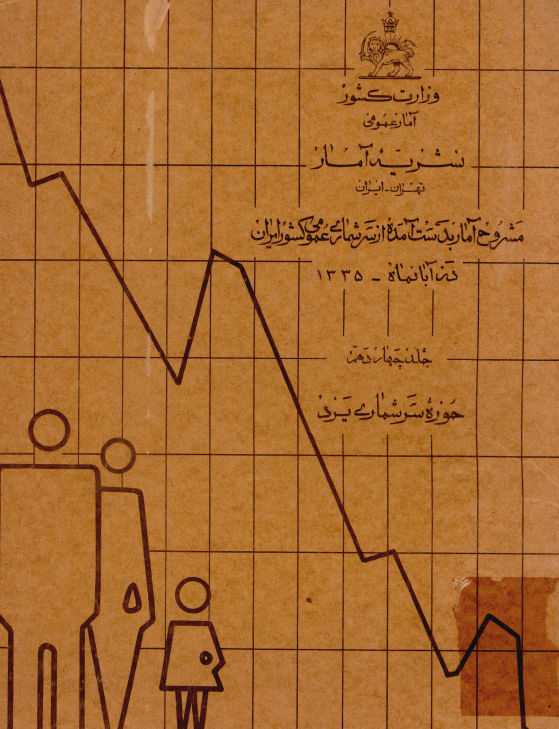 وزارت کشور
آمار عمومی
نشریه آمار
تهران - ایران
مشروح آمار بدست آمده از سرشماری عمومی کشور ایران
در آبانماه - ۱۳۳۵
جلد چهاردهم
حوزه سرشماری یزد